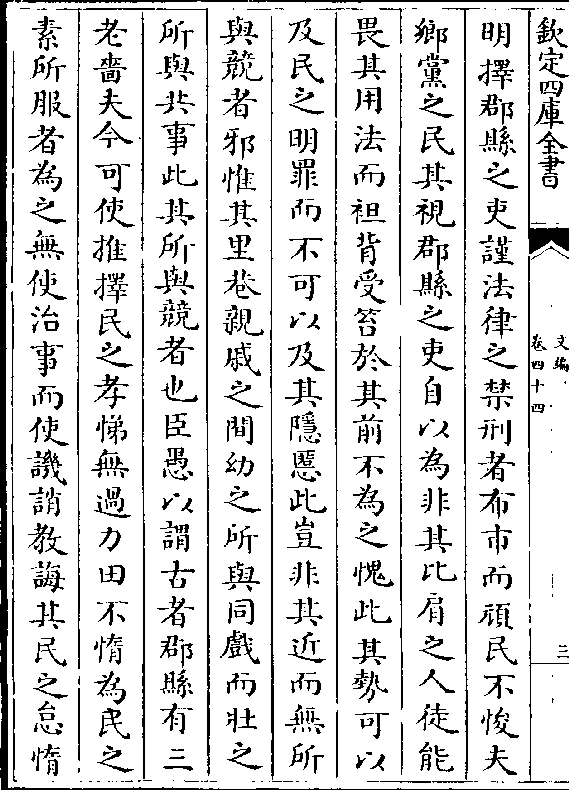 欽定四庫全書
文編
卷四十四
三
明擇郡縣之吏謹法律之禁刑者布市而頑民不悛夫
鄉黨之民其視郡縣之吏自以為非其比肩之人徒能
畏其用法而袒背受笞於其前不為之愧此其勢可以
及民之明罪而不可以及其隱慝此豈非其近而無所
與競者邪惟其里巷親戚之間幼之所與同戲而壯之
所與共事此其所與競者也臣愚以謂古者郡縣有三
老嗇夫今可使推擇民之孝悌無過力田不惰為民之
素所服者為之無使治事而使譏誚教誨其民之怠惰